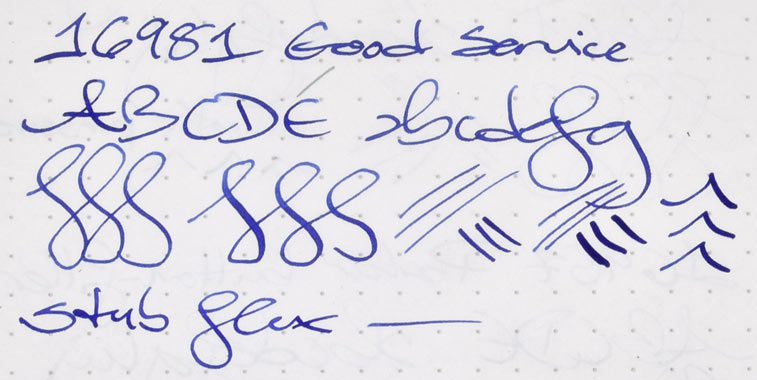 16981 Good Service
ABCDE abcdefg
stub flex